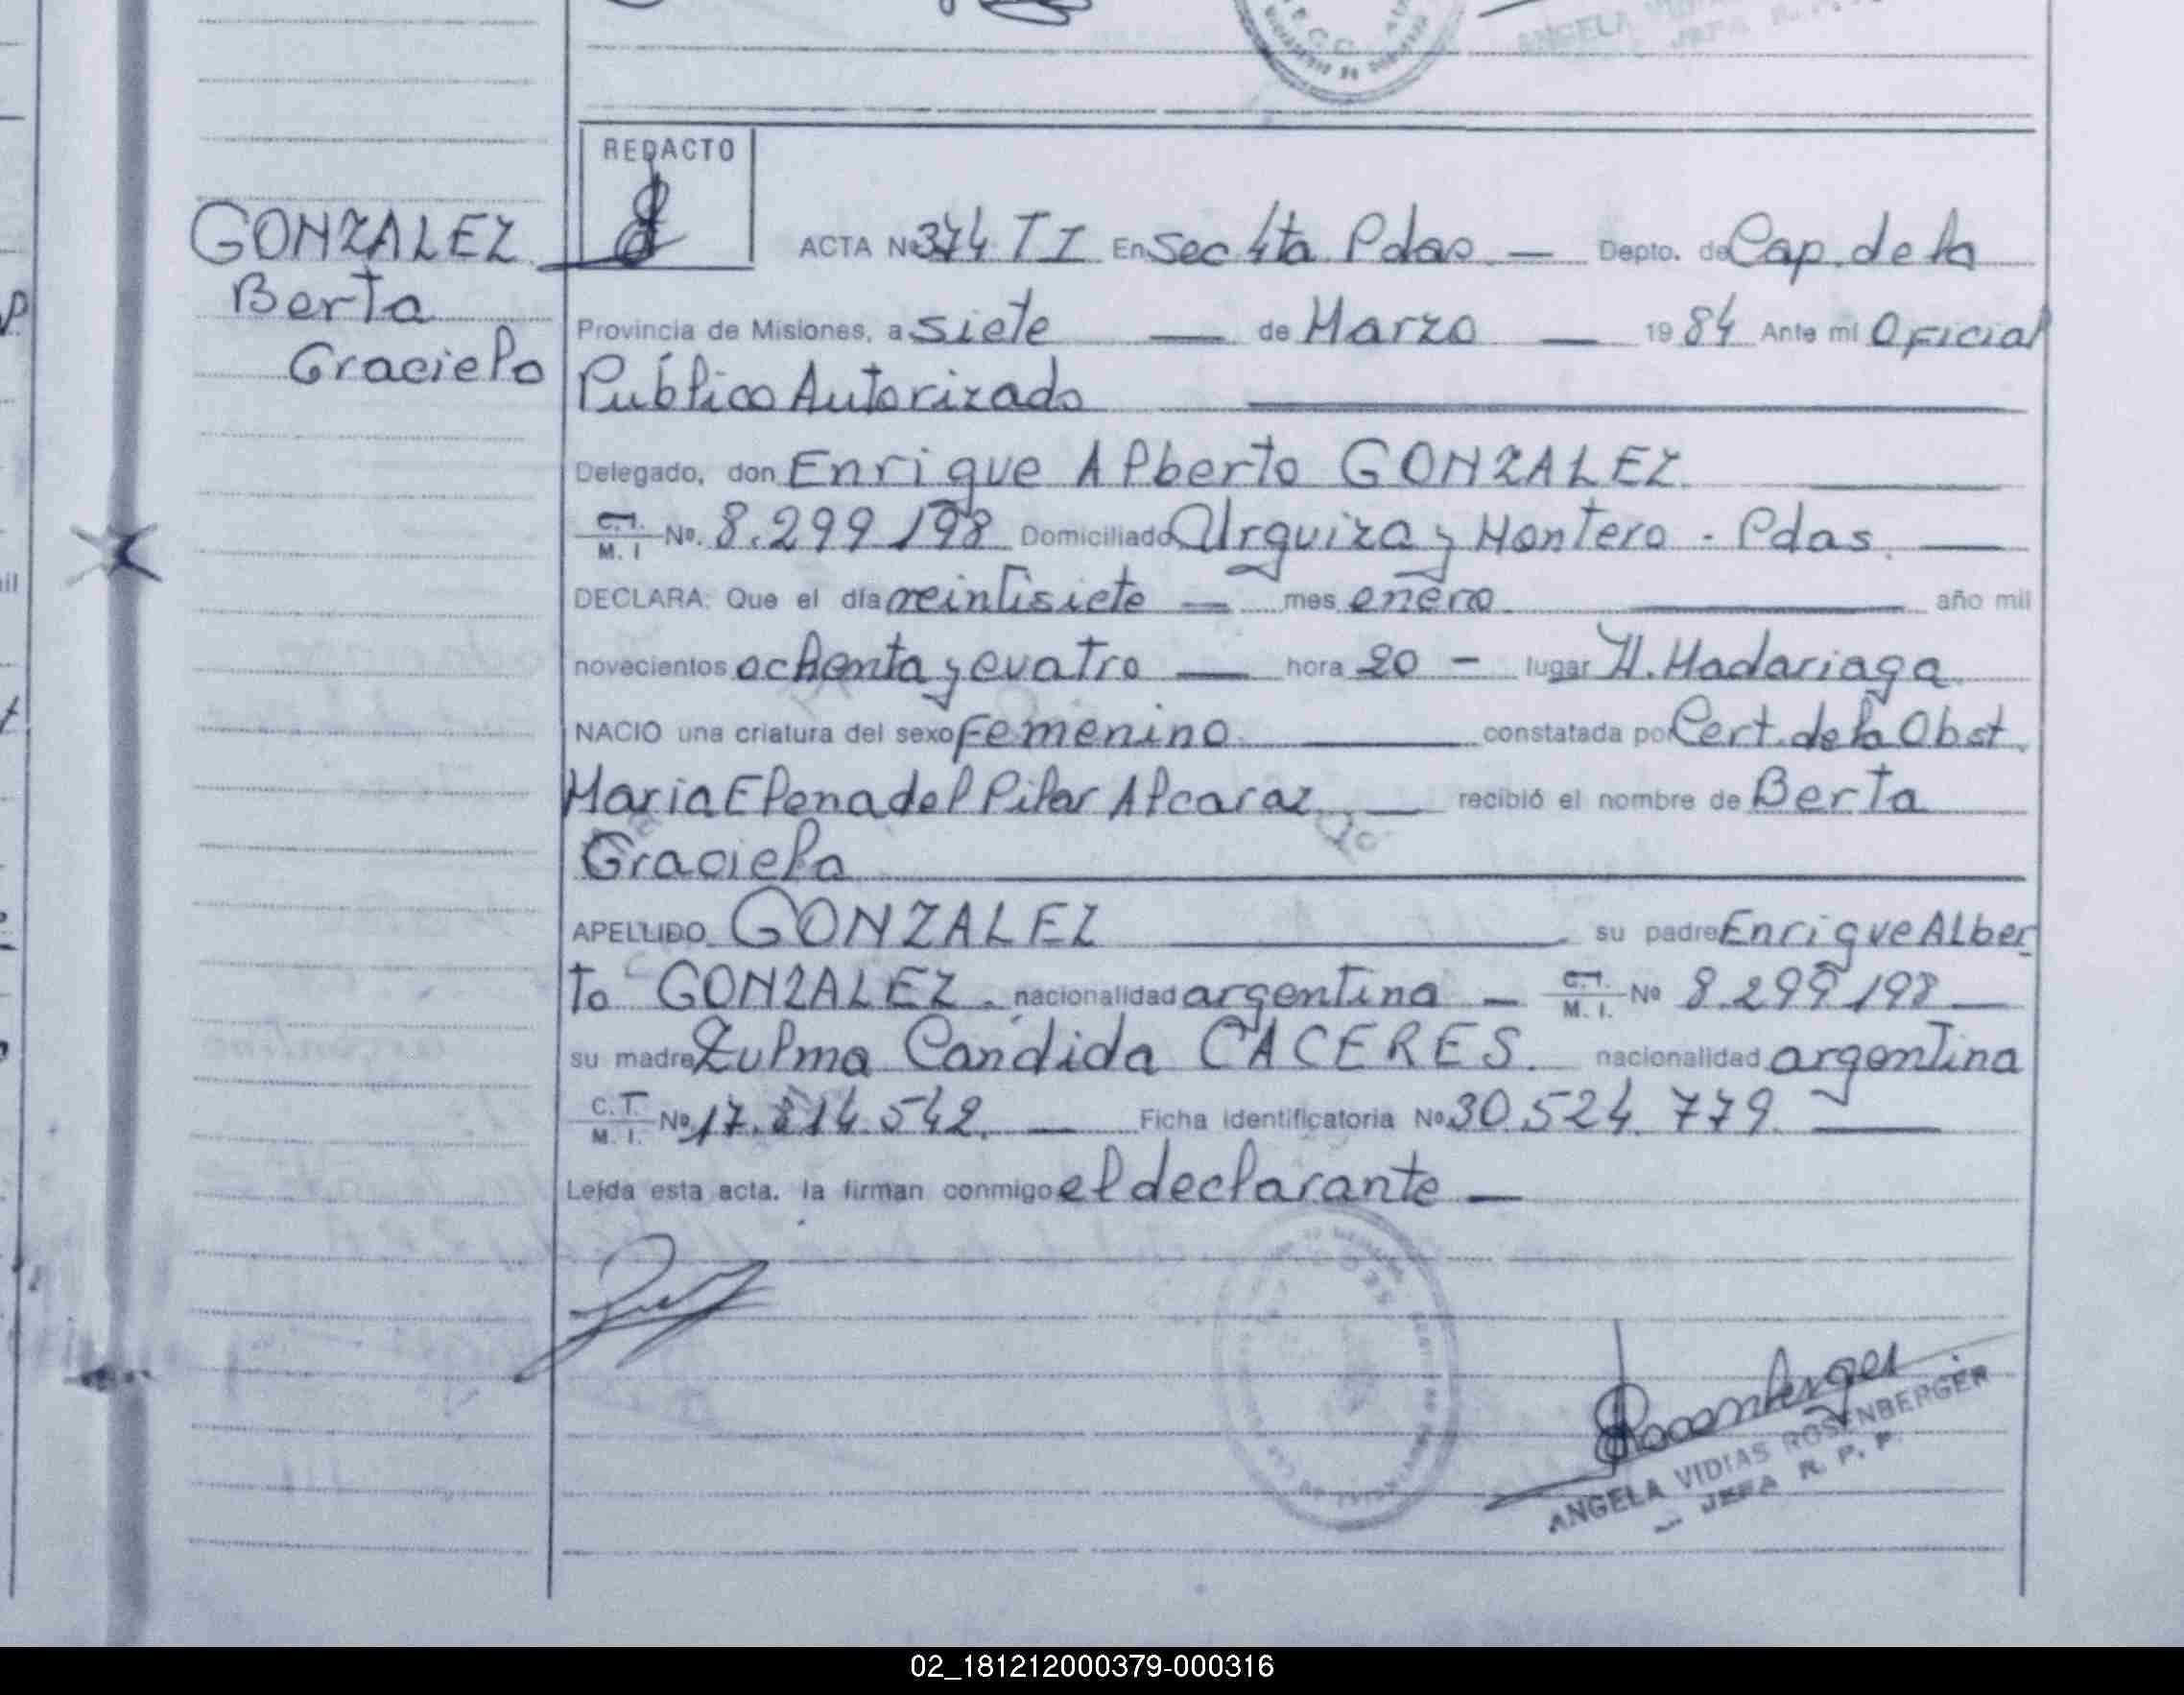 ANGELA VIDIAS
JEFA R. P.
REDACTO
GONZALEZ
Berta
Graciela
ACTA Nº 374 TI En Sec 4ta Pdas. — Depto. de Cap. de la
Provincia de Misiones, a siete — de Marzo — 19 84 Ante mi Oficial
Público Autorizado
Delegado, don Enrique Alberto GONZALEZ
C.T. M. I Nº. 8.299 198 Domiciliado Urquiza y Montero - Pdas. —
DECLARA: Que el día veintisiete — mes enero — año mil
novecientos ochenta y cuatro — hora 20 - lugar H. Madariaga
NACIO una criatura del sexo Femenino — constatada por Cert. de la Obst.
Maria Elena del Pilar Alcaraz — recibió el nombre de Berta
Graciela
APELLIDO GONZALEZ — su padre Enrique Alber
to GONZALEZ. nacionalidad argentina — C.T. M. I. Nº 8.299 198 —
su madre Zulma Candida CACERES. nacionalidad argentina
C.T. M. I. Nº 17. 514.542. — Ficha identificatoria Nº 30.524.779. —
Leída esta acta, la firman conmigo el declarante —
Rosenberger
ANGELA VIDIAS ROSENBERGER
— JEFA R. P. P.
02_181212000379-000316